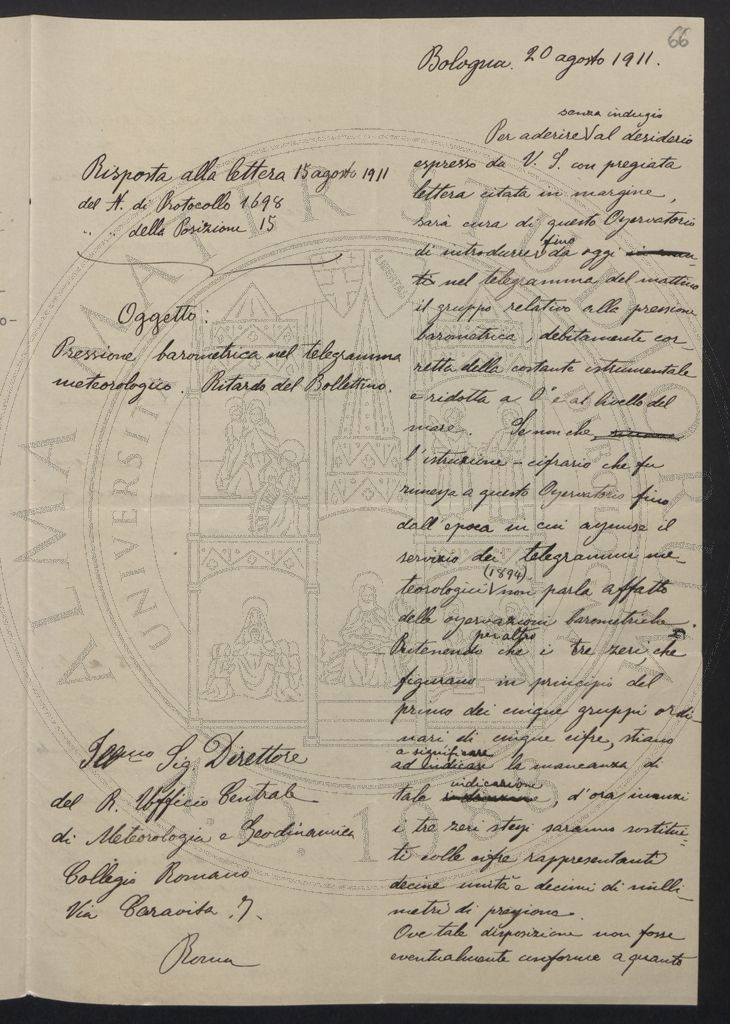 66
Bologna. 20 agosto 1911.
Risposta alla lettera 15 agosto 1911
del N. di Protocollo 1698
" " della Posizione 15
Oggetto:
Pressione barometrica nel telegramma
meteorologico. Ritardo del Bollettino.
Illmo Sig. Direttore
del R. Ufficio Centrale
di Meteorologia e Geodinamica
Collegio Romano
Via Caravita 7.
Roma
senza indugio
Per aderire al desiderio
espresso da V. S. con pregiata
lettera citata in margine,
sarà cura di questo Osservatorio
di introdurre fino da oggi
nel telegramma del mattino
il gruppo relativo alla pressione
barometrica, debitamente cor-
retta della costante istrumentale
e ridotta a 0° e al livello del
mare. Se non che
l'istruzione-cifrario che fu
rimessa a questo Osservatorio fino
dall'epoca in cui assunse il
servizio dei telegrammi me-
teorologici (1894) non parla affatto
delle osservazioni barometriche.
Ritenendo per altro che i tre zeri che
figurano in principio del
primo dei cinque gruppi ordi-
nari di cinque cifre, stiano
a significare
ad indicare la mancanza di
tale indicazione, d'ora innanzi
i tre zeri stessi saranno sostitui-
ti colle cifre rappresentanti
decine unità e decimi di milli-
metri di pressione.
Ove tale disposizione non fosse
eventualmente conforme a quanto
ALMA MATER STUDIORUM
UNIVERSITÀ
LIBERTAS
A.D. 1088